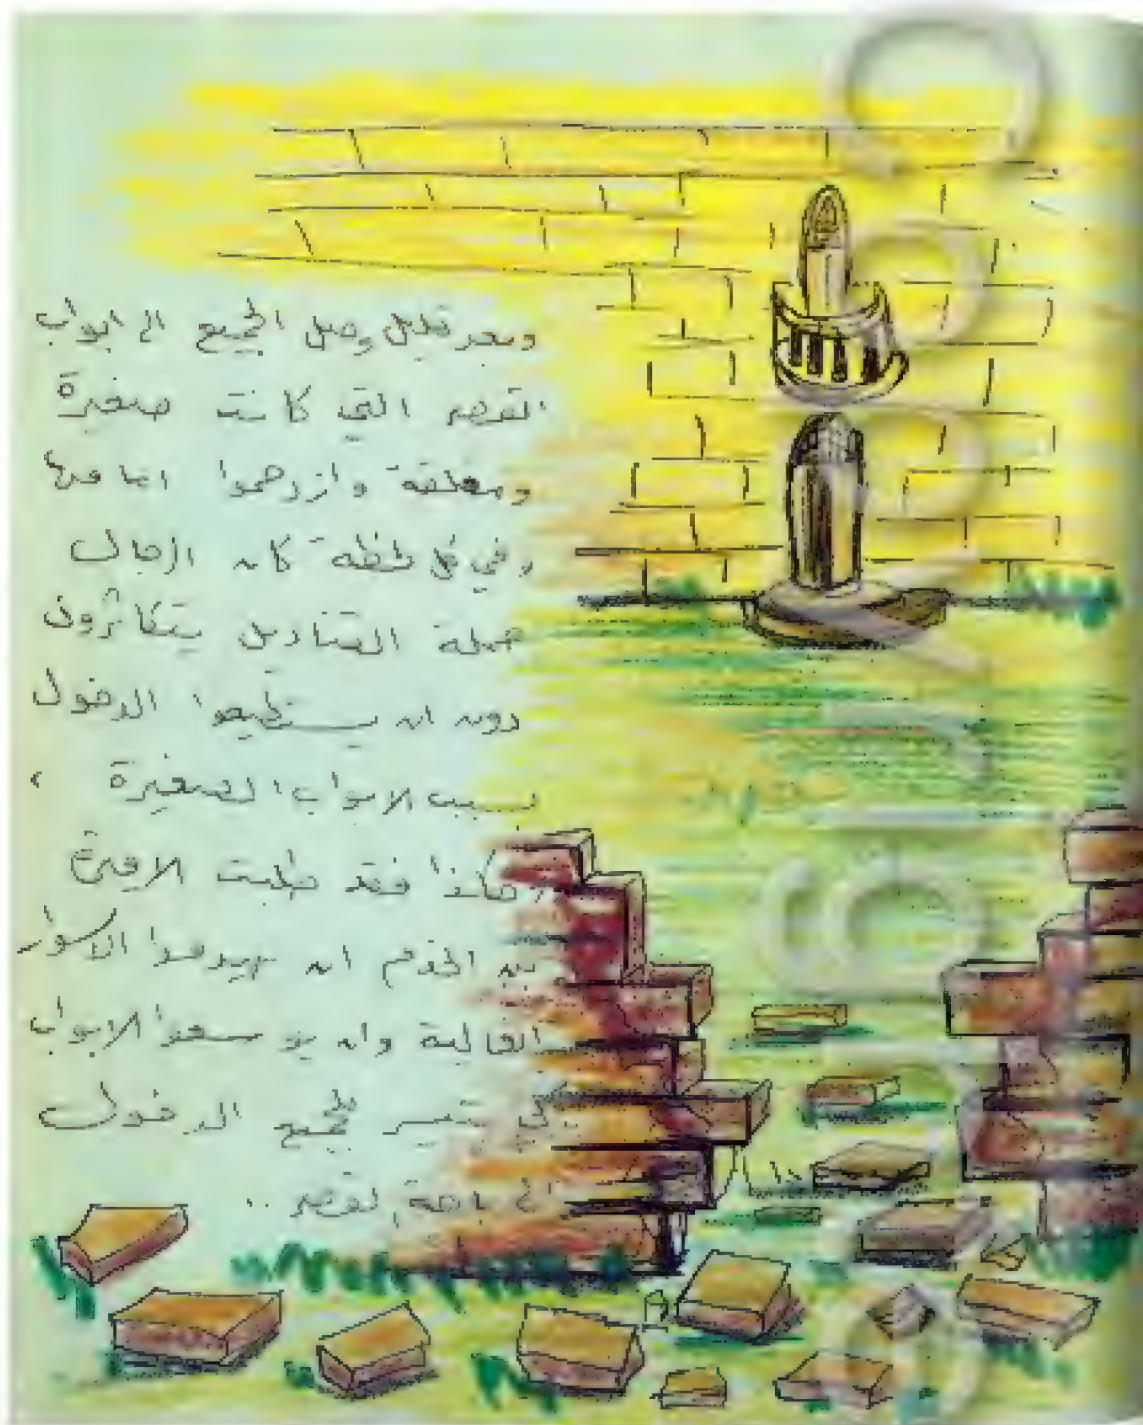 وبعد قليل وصل الجميع الى ابواب
القصر التي كانت صغيرة
ومغلقة وازدحموا امامها
وفي كل لحظة كان الرجال
حملة القناديل يتكاثرون
دون ان يستطيعوا الدخول
بسبب الابواب الصغيرة ،
وهكذا فقد طلبت الاميرة
من الخدم ان يهدموا الاسوار
العالية وان يوسعوا الابواب
كي يتيسر للجميع الدخول
الى باحة القصر ..